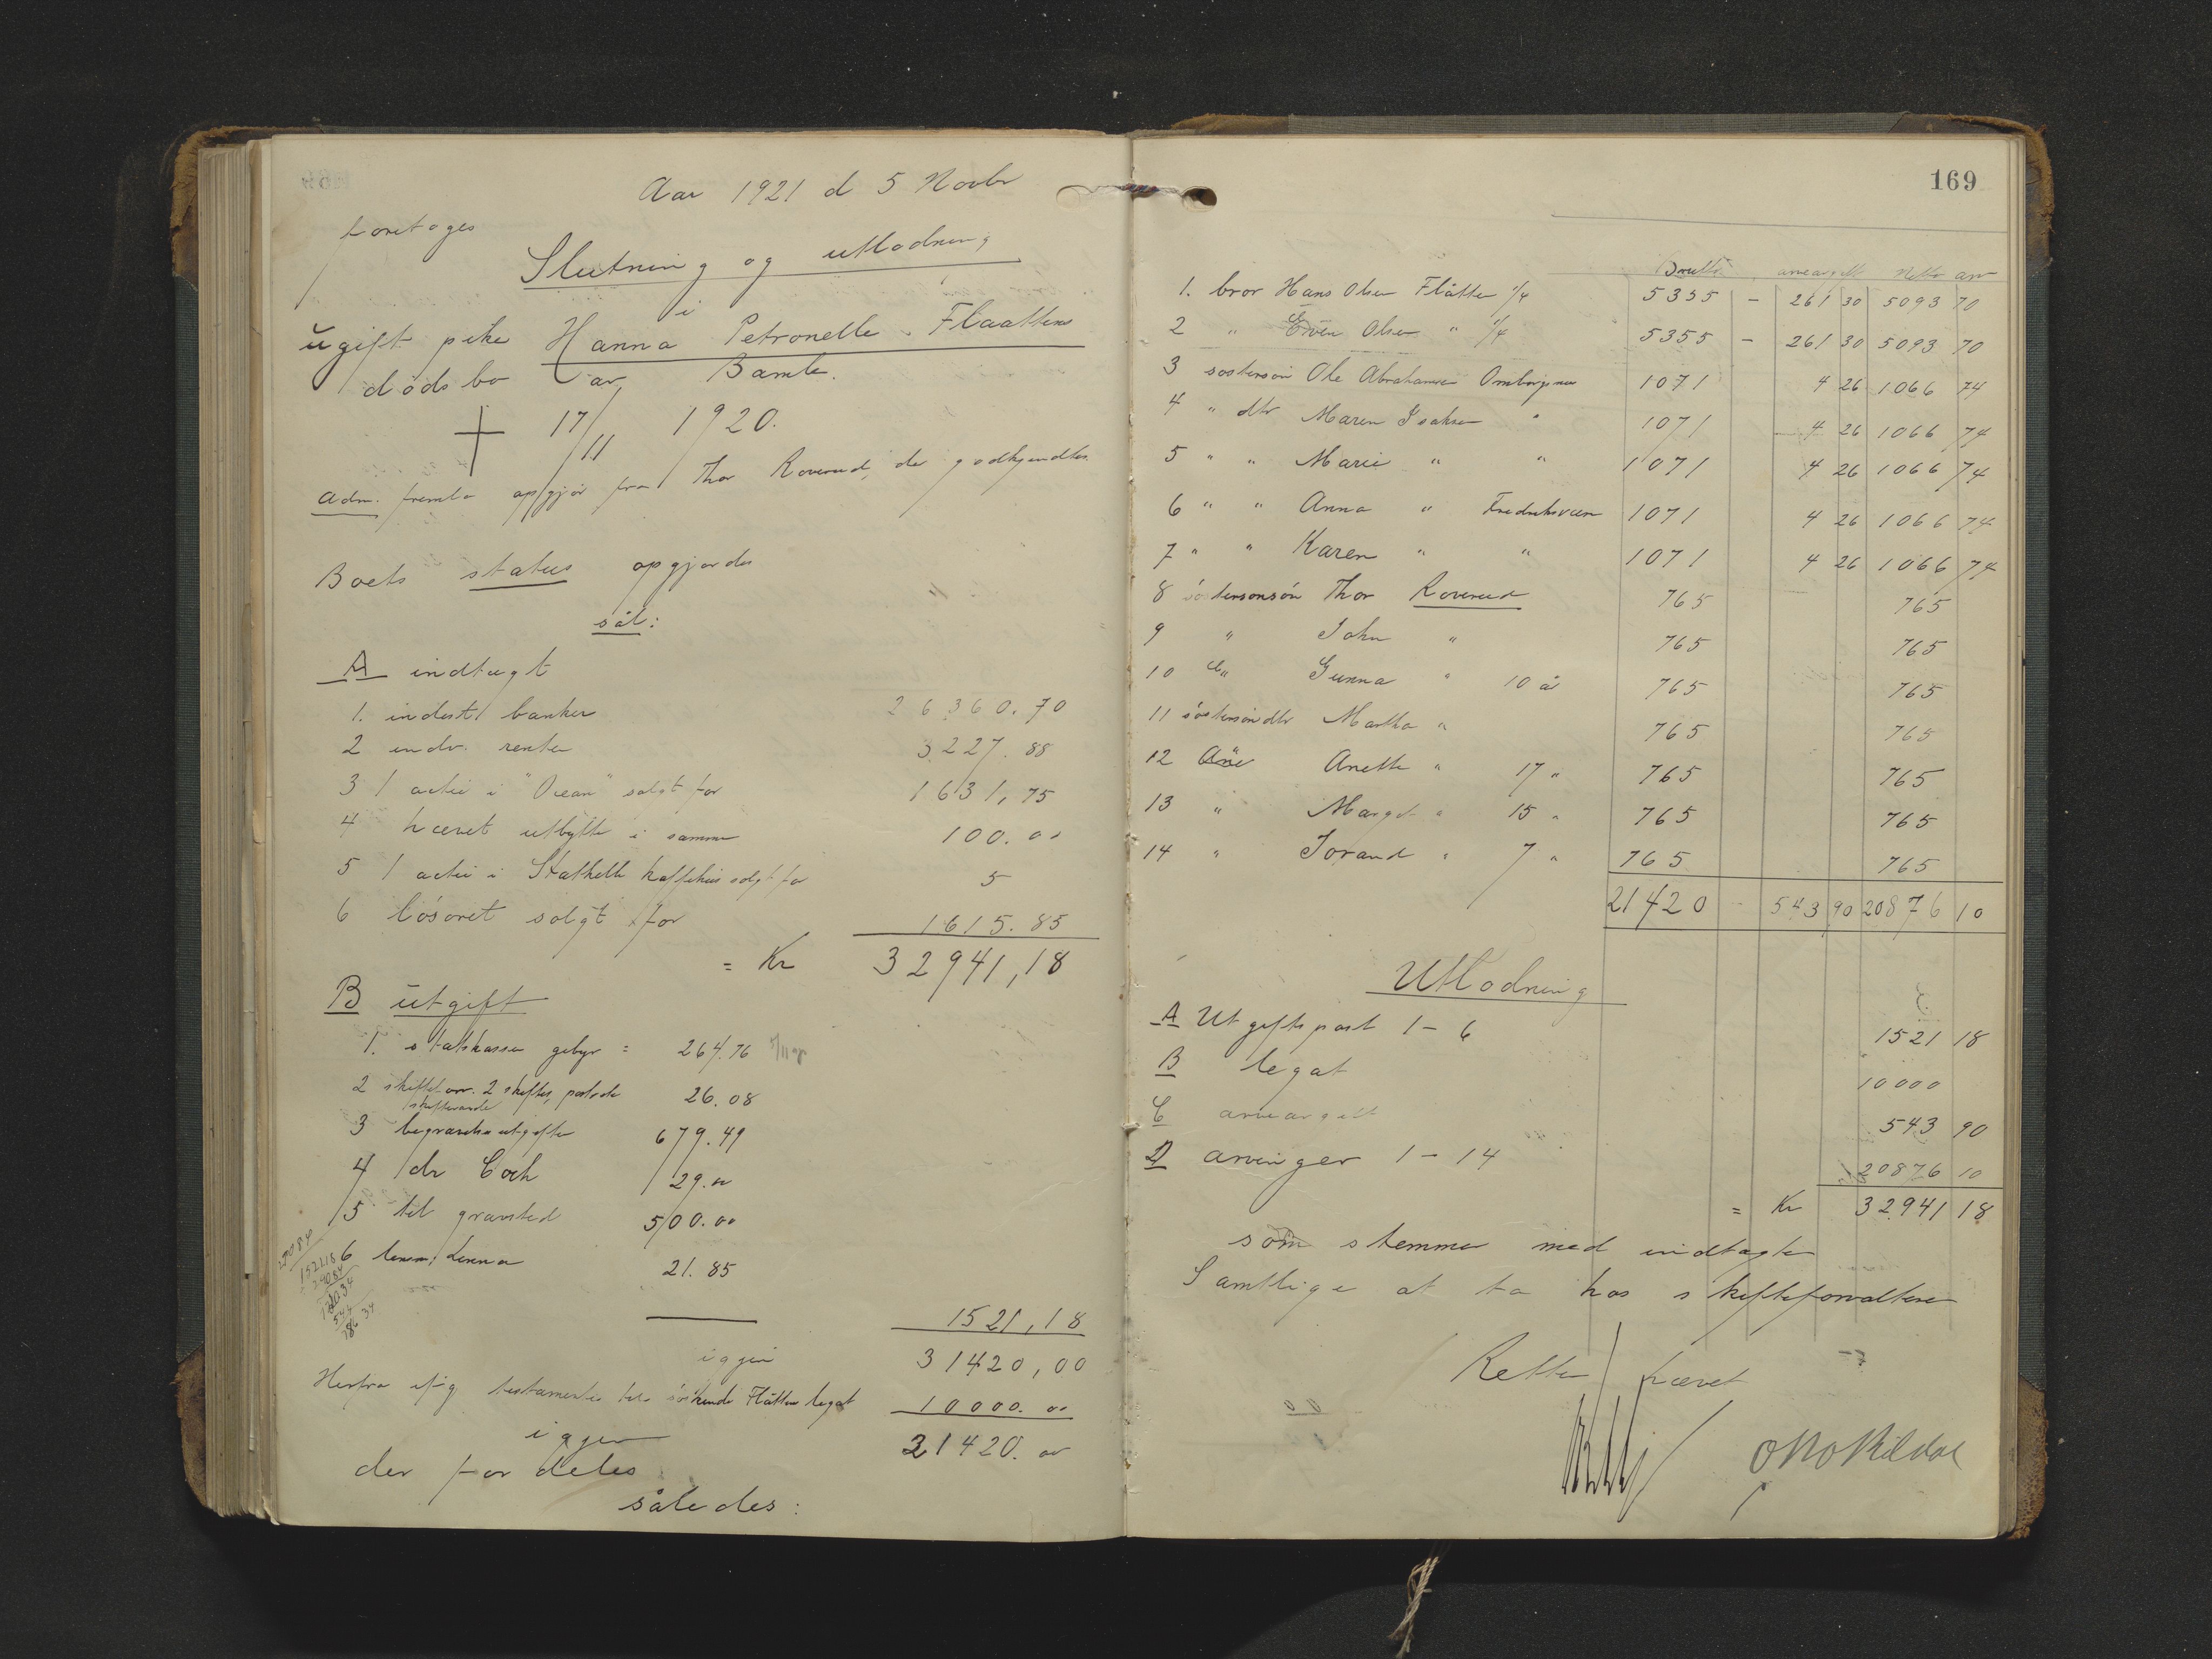 Aar 1921 d 5 Novbr
foretoges
Slutning og utlodning
i
ugift pike Hanna Petronelle Flaattens
dødsbo av Bamle.
† 17/11 1920.
Adm. fremla opgjør fra Thor Roverud, der godkjendtes
Boets status opgjordes
sål:
A indtægt
1. indest. i banker 26360.70
2 indv. renter 3227.88
3 1 actie i "Ocean" solgt for 1631,75
4 hævet utbytte i samme 100.00
5 1 actie i Stathelle kaffehus solgt for 5
6 løsøret solgt for 1615.85
= Kr 32941,18
B utgift
1. statskassen gebyr = 264.76
2 skiftet 2 skifter, porto 26.08
3 begravelsesutgifter 679.49
4 dr Coch 29.00
5 til gravsted 500.00
6 21.85
1521,18
igjen 31420,00
Herfra ifølg testamente til søskende Flåttens legat 10000.00
igjen 21420.00
der fordeles
således:
169
Brutto arveavgift Netto arv
1. bror Hans Olsen Flåtten 1/4 5355 - 261 30 5093 70
2 " Even Olsen " 1/4 5355 - 261 30 5093 70
3 søstersøn Ole Abrahamsen 1071 4 26 1066 74
4 " dtr Maren Isaksen " 1071 4 26 1066 74
5 " " Marie " " 1071 4 26 1066 74
6 " " Anna " Fredriksværn 1071 4 26 1066 74
7 " " Karen " " 1071 4 26 1066 74
8 søstersønsøn Thor Roverud 765 765
9 " John " 765 765
10 " Gunna " 10 år 765 765
11 søstersøndtr Martha " 765 765
12 Anette " 17 " 765 765
13 " Margot " 15 " 765 765
14 " Jorand " 7 " 765 765
21420 - 543 90 20876 10
Utlodning
A Utgiftspost 1-6 1521 18
B legat 10000
C arveavgift 543 90
D arvinger 1-14 20876 10
= Kr 32941 18
som stemmer med indtægten
Samtlige at ta hos skifteforvalteren
Retten hævet